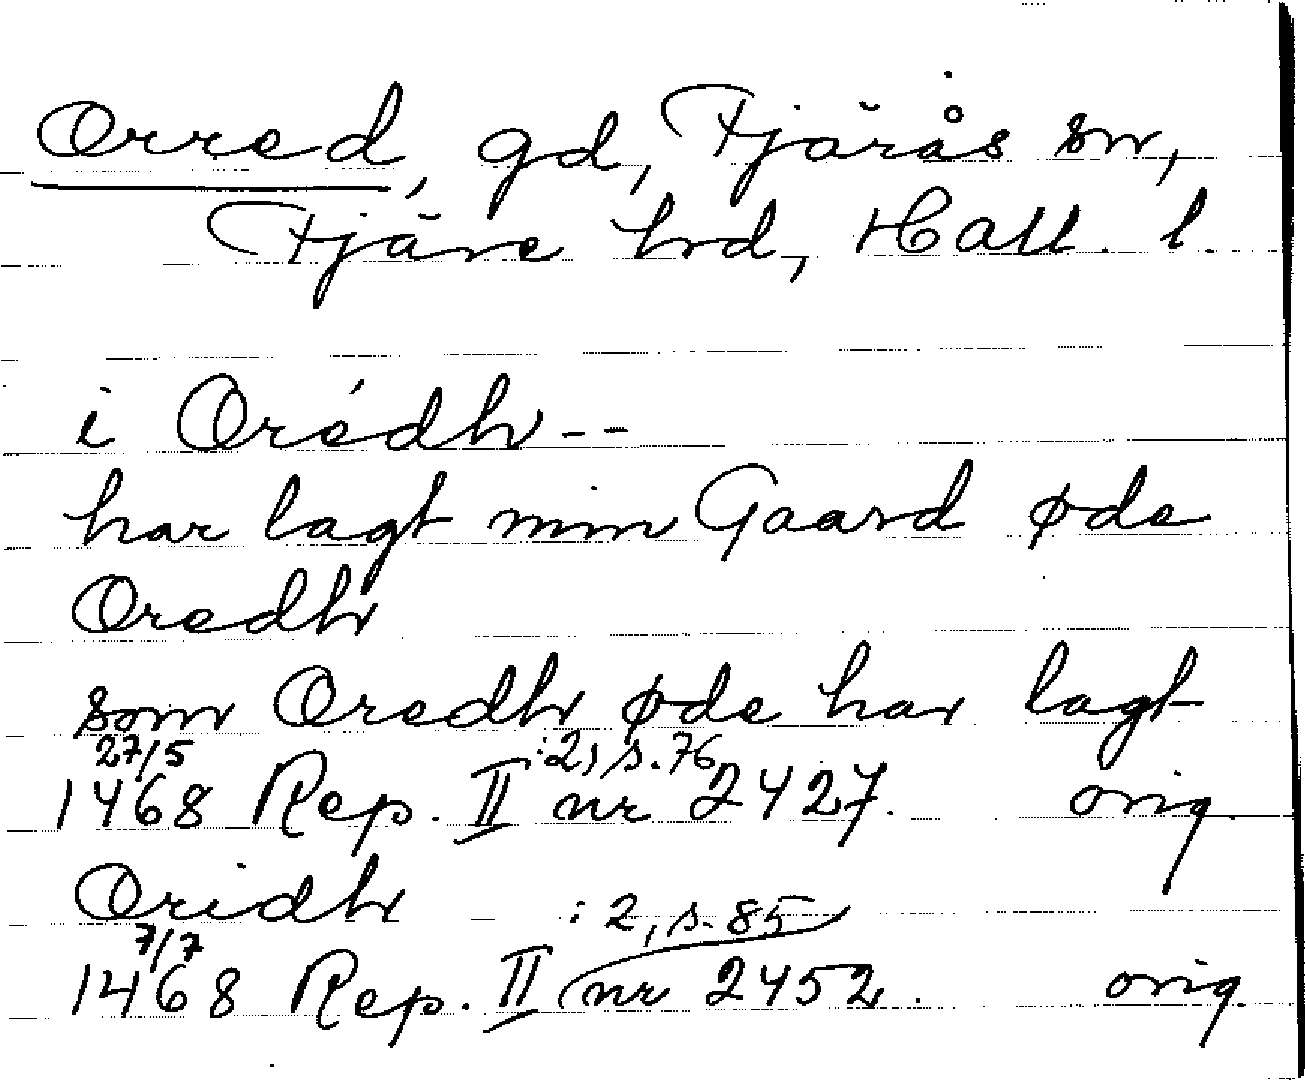 Orred, gd, Fjärås sn,
Fjäre hrd, Hall. l.
i Orédh--
har lagt min Gaard øde
Oredh
som Oredh øde har lagt
27/5 :2, s. 76
1468 Rep. II nr 2427. orig
Oridh
7/7 :2, s. 85
1468 Rep. II nr 2452. orig.